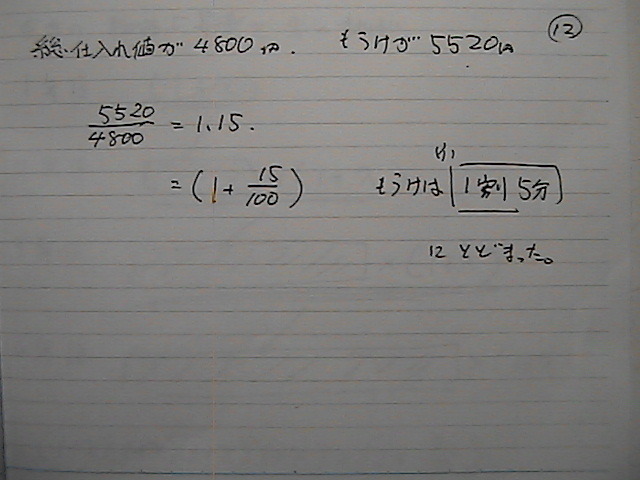 ⑫
総仕入れ値が 4800円. もうけが 5520円
5520/4800 = 1.15.
= (1 + 15/100)
もうけは 1割5分
12 とどまった。